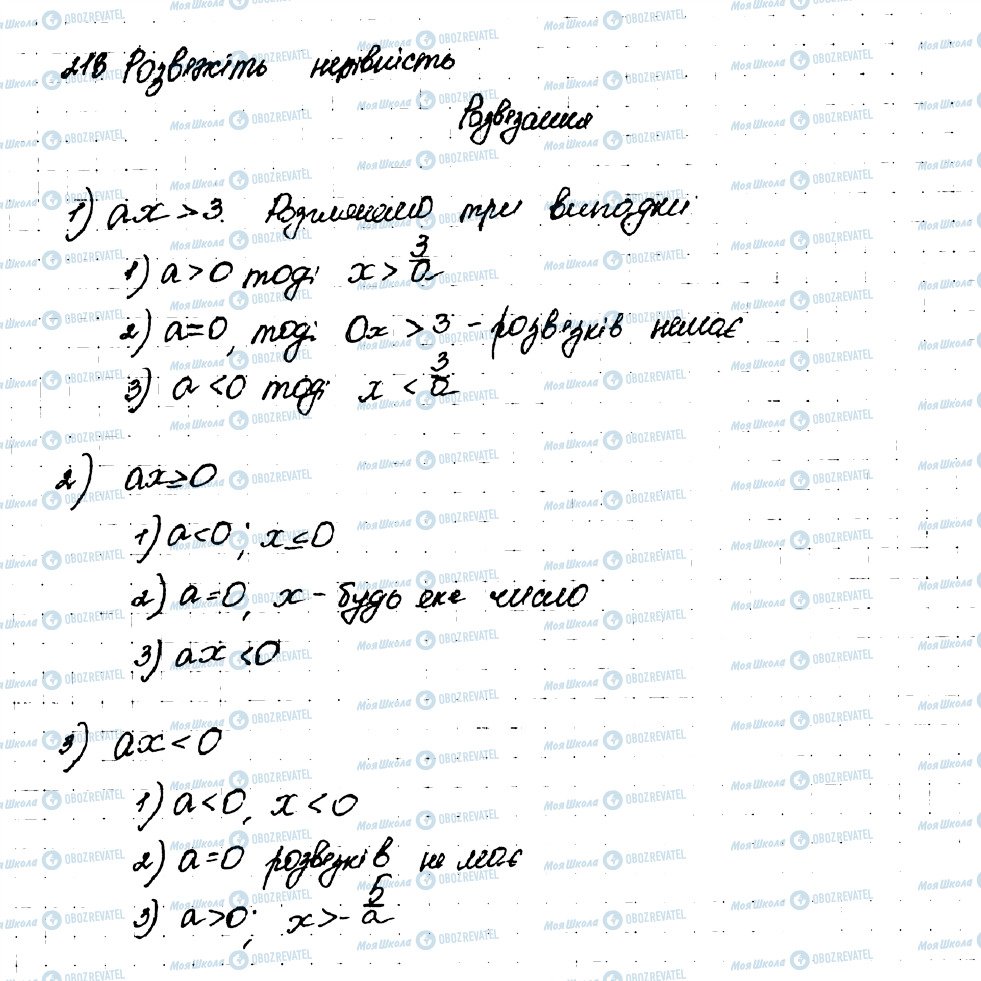 218 Розвяжіть нерівність
Розвязання
1) ax > 3. Розглянемо три випадки
1) a > 0 тоді x > 3/a
2) a = 0, тоді 0x > 3 - розвязків немає
3) a < 0 тоді x < 3/a
2) ax ≥ 0
1) a < 0; x ≤ 0
2) a = 0, x - будь яке число
3) ax < 0
3) ax < 0
1) a < 0, x < 0
2) a = 0 розвязків не має
3) a > 0; x > - 5/a
Моя Школа OBOZREVATEL